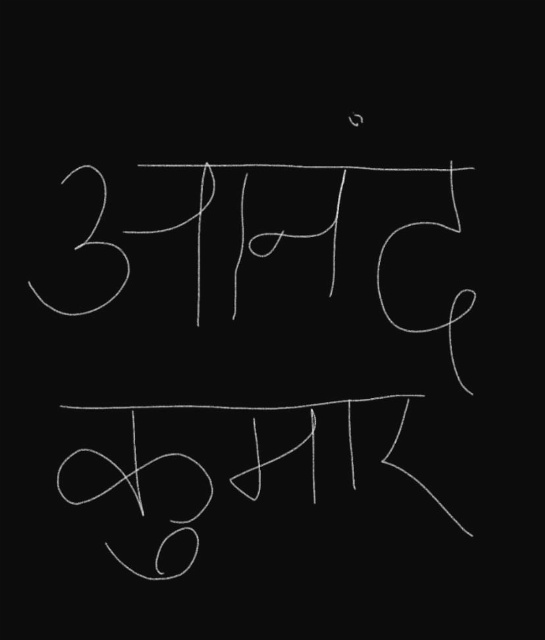 आनंद
कुमार